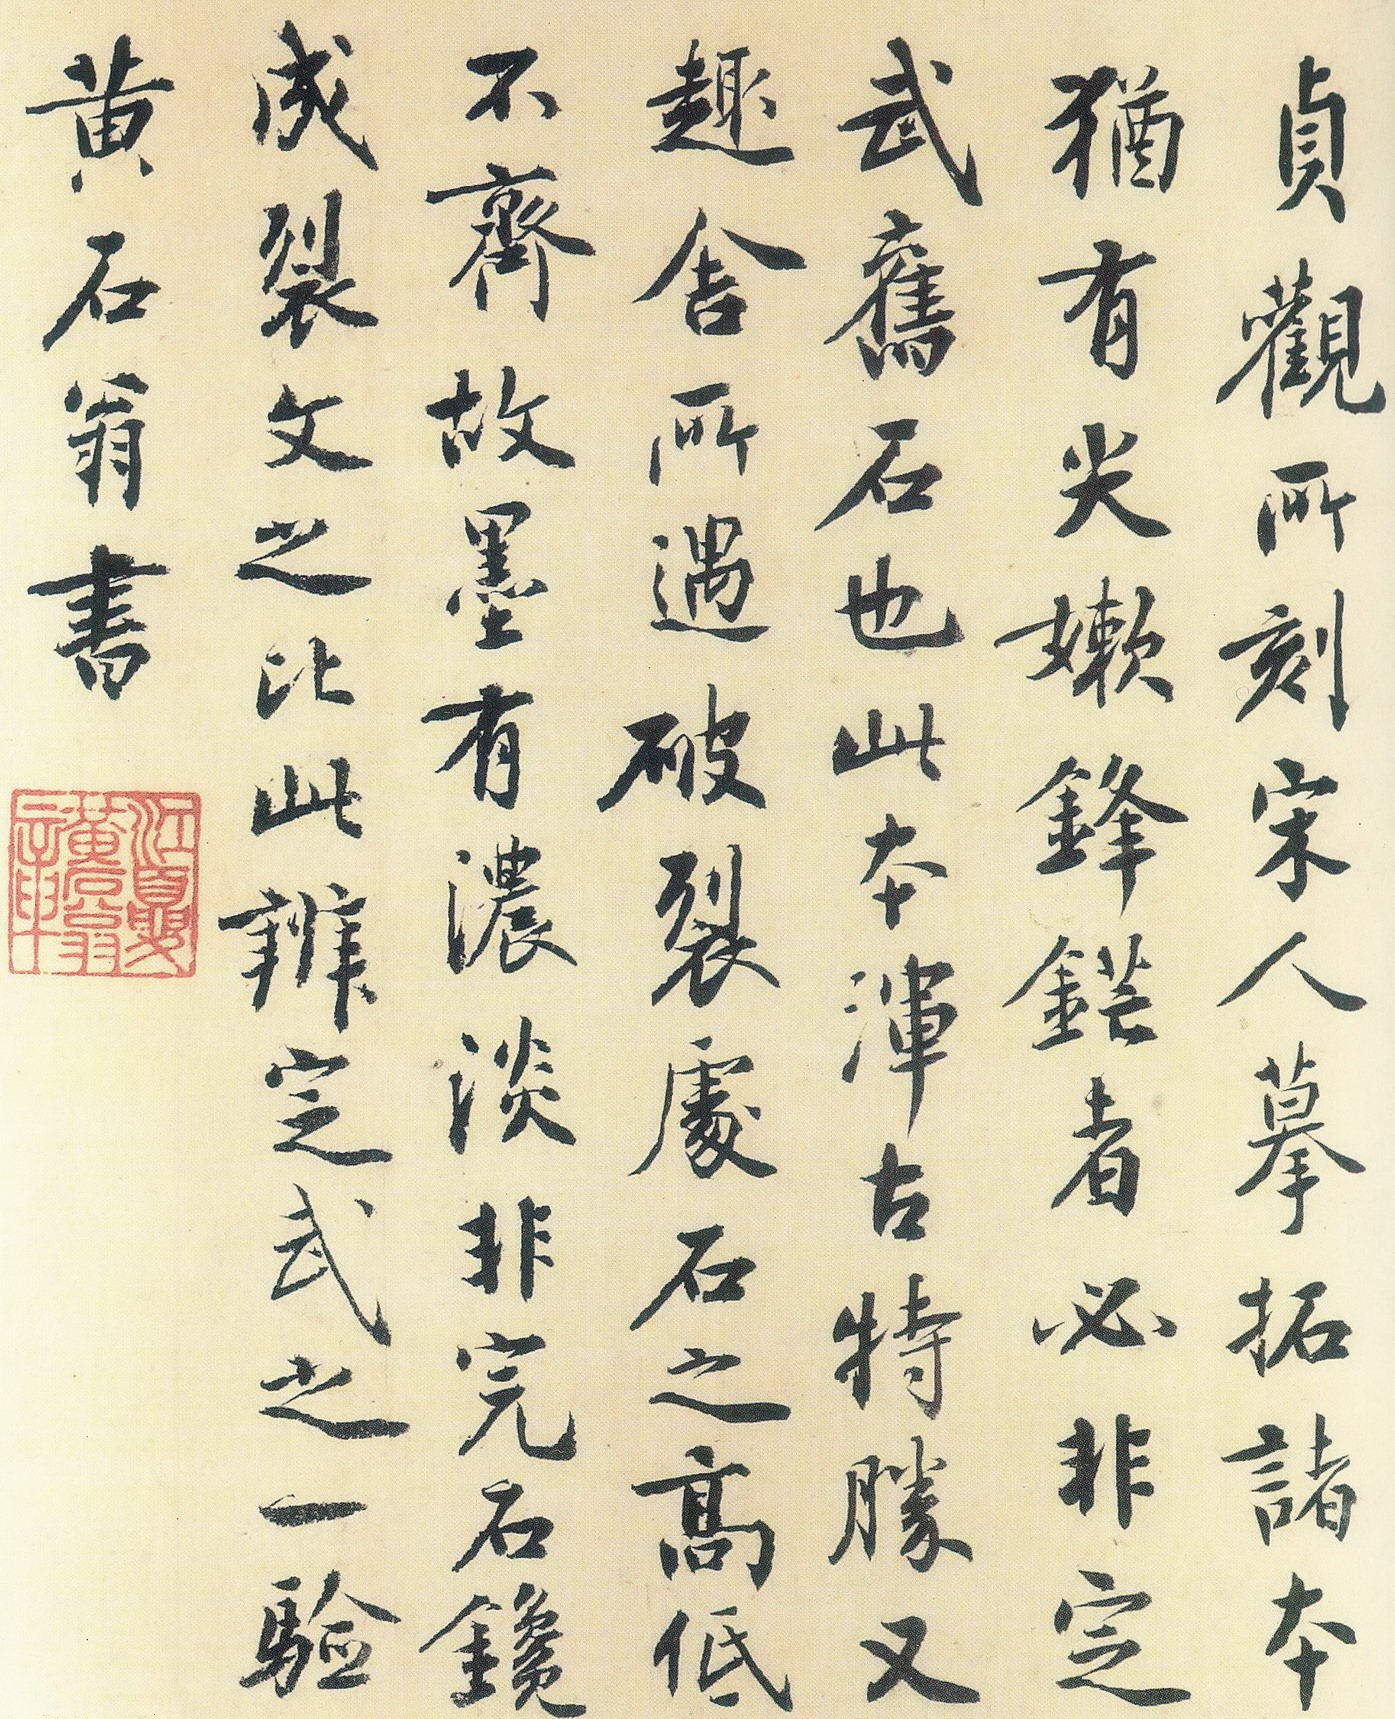 貞觀所刻宋人摹拓諸本
猶有尖嫰鋒鋩者必非定
武舊石也此本渾古特勝又
趣舍所遇破裂處石之高低
不齊故墨有濃淡非完石鑱
成裂文之比此辨定武之一驗
黃石翁書
江夏
黃石翁